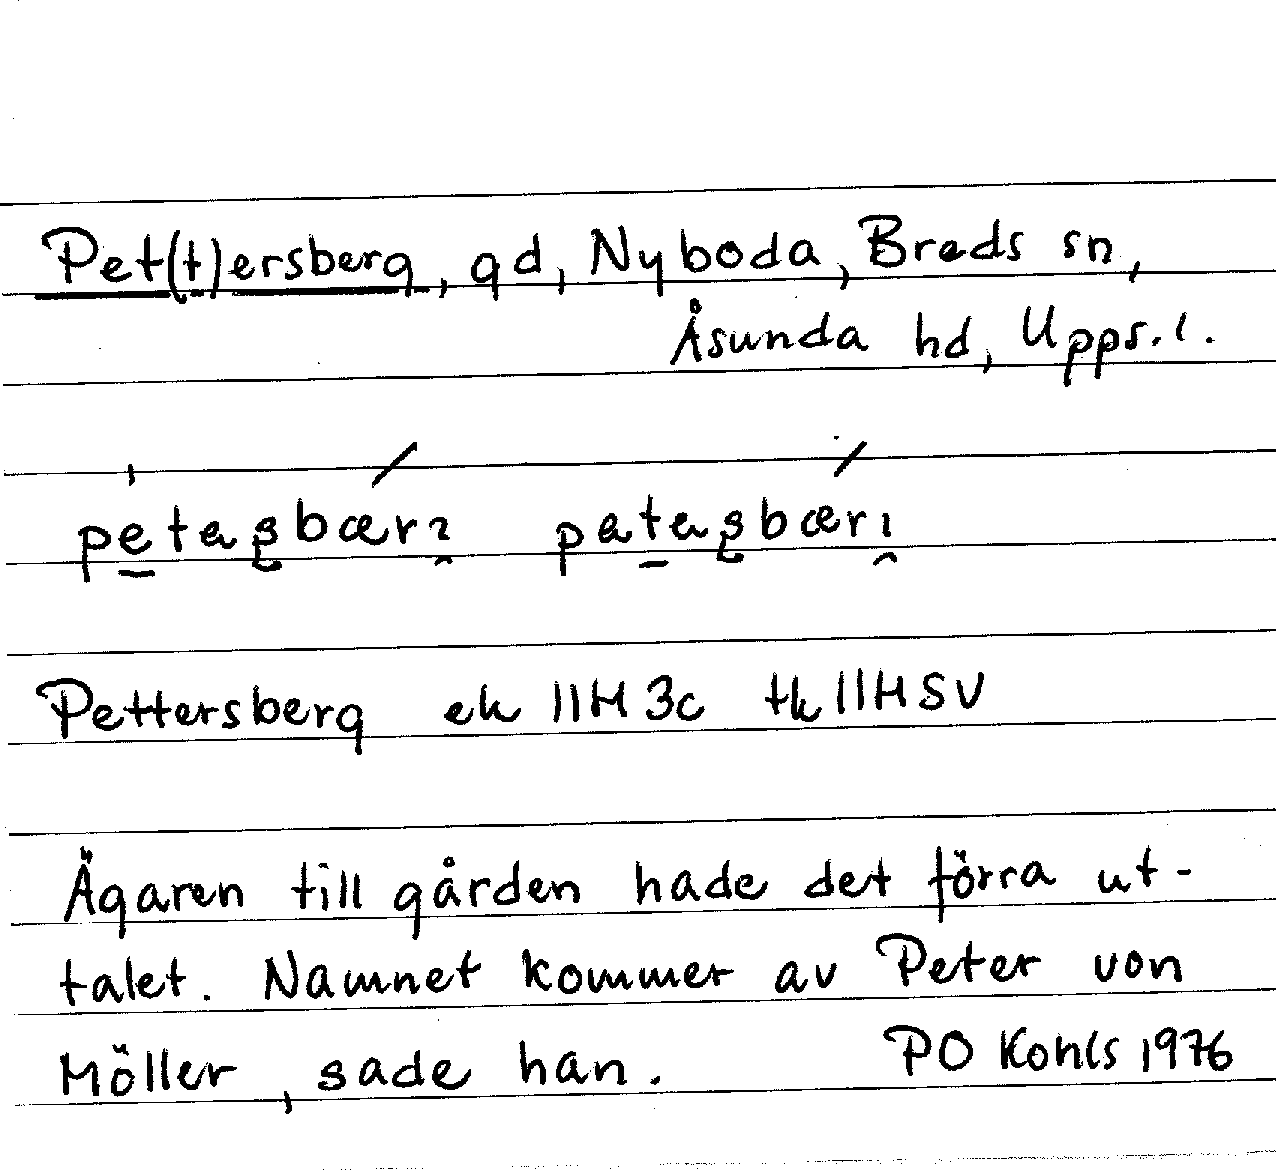 Pet(t)ersberg, gd, Nyboda, Breds sn,
Åsunda hd, Upps. l.
Pettersberg ek 11H 3c tk 11HSV
Ägaren till gården hade det förra ut-
talet. Namnet kommer av Peter von
Möller, sade han. PO Kohls 1976